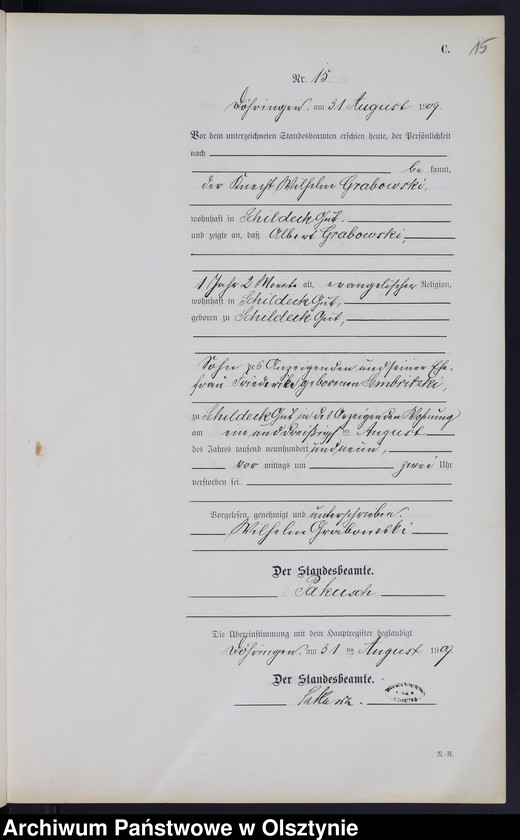 C. 15
Nr. 15.
Döhringen, am 31 August 1909.
Vor dem unterzeichneten Standesbeamten erschien heute, der Persönlichkeit
nach
be kannt,
der Knecht Wilhelm Grabowski,
wohnhaft in Schildeck Gut.
und zeigte an, daß Albert Grabowski,
1 Jahr 2 Monate alt, evangelischer Religion,
wohnhaft in Schildeck Gut,
geboren zu Schildeck Gut,
Sohn des Anzeigenden und seiner Ehe-
frau Friederike geborenen Sembritzki,
zu Schildeck Gut in des Anzeigenden Wohnung
am einunddreißigsten August
des Jahres tausend neunhundert und neun,
vor mittags um zwei Uhr
verstorben sei.
Vorgelesen, genehmigt und unterschrieben.
Wilhelm Grabowski
Der Standesbeamte.
Pakusch
Die Übereinstimmung mit dem Hauptregister beglaubigt
Döhringen, am 31 ten August 1909.
Der Standesbeamte.
N.-R.
Archiwum Państwowe w Olsztynie